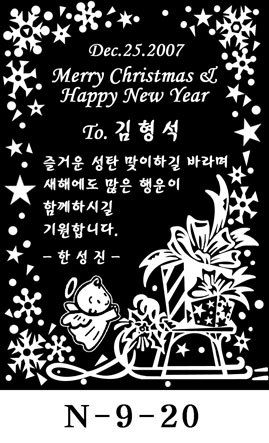 Dec.25.2007
Merry Christmas &
Happy New Year
To. 김형석
즐거운 성탄 맞이하길 바라며
새해에도 많은 행운이
함께하시길
기원합니다.
- 한성진 -
N-9-20